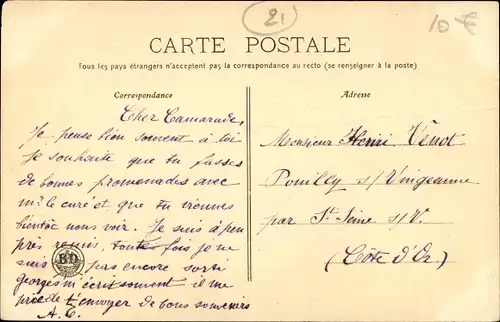 21
10
CARTE POSTALE
Tous les pays étrangers n'acceptent pas la correspondance au recto (se renseigner à la poste)
Correspondance
Cher Camarade,
Je pense bien souvent à toi
Je souhaite que tu fasses
de bonnes promenades avec
mr le curé et que tu viennes
bientôt nous voir. Je suis à peu
près remis, toute fois je ne
suis pas encore sorti
georges m'écrit souvent il me
prie de t'envoyer de bons souvenirs
A.C.
BD
Adresse
Monsieur Henri Venot
Pouilly s/Vingeanne
par St. Seine s/V.
(Côte d'Or)